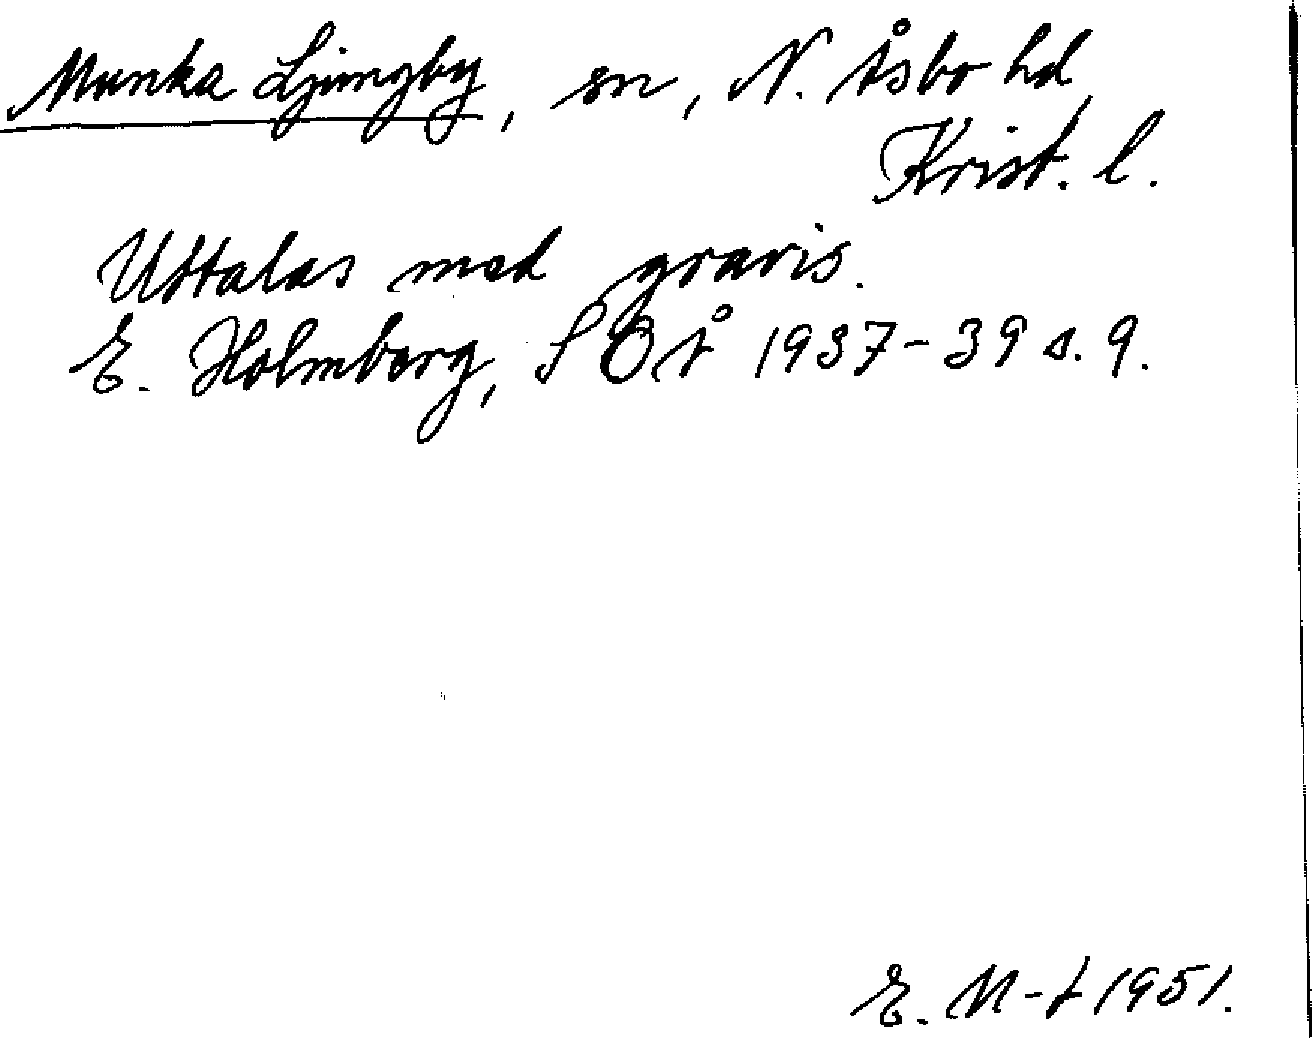 Munka Ljungby, sn, N. Åsbo hd,
Krist. l.
Uttalas med gravis.
E. Holmberg, SOÅ 1937-39 s. 9.
E. M-t 1951.